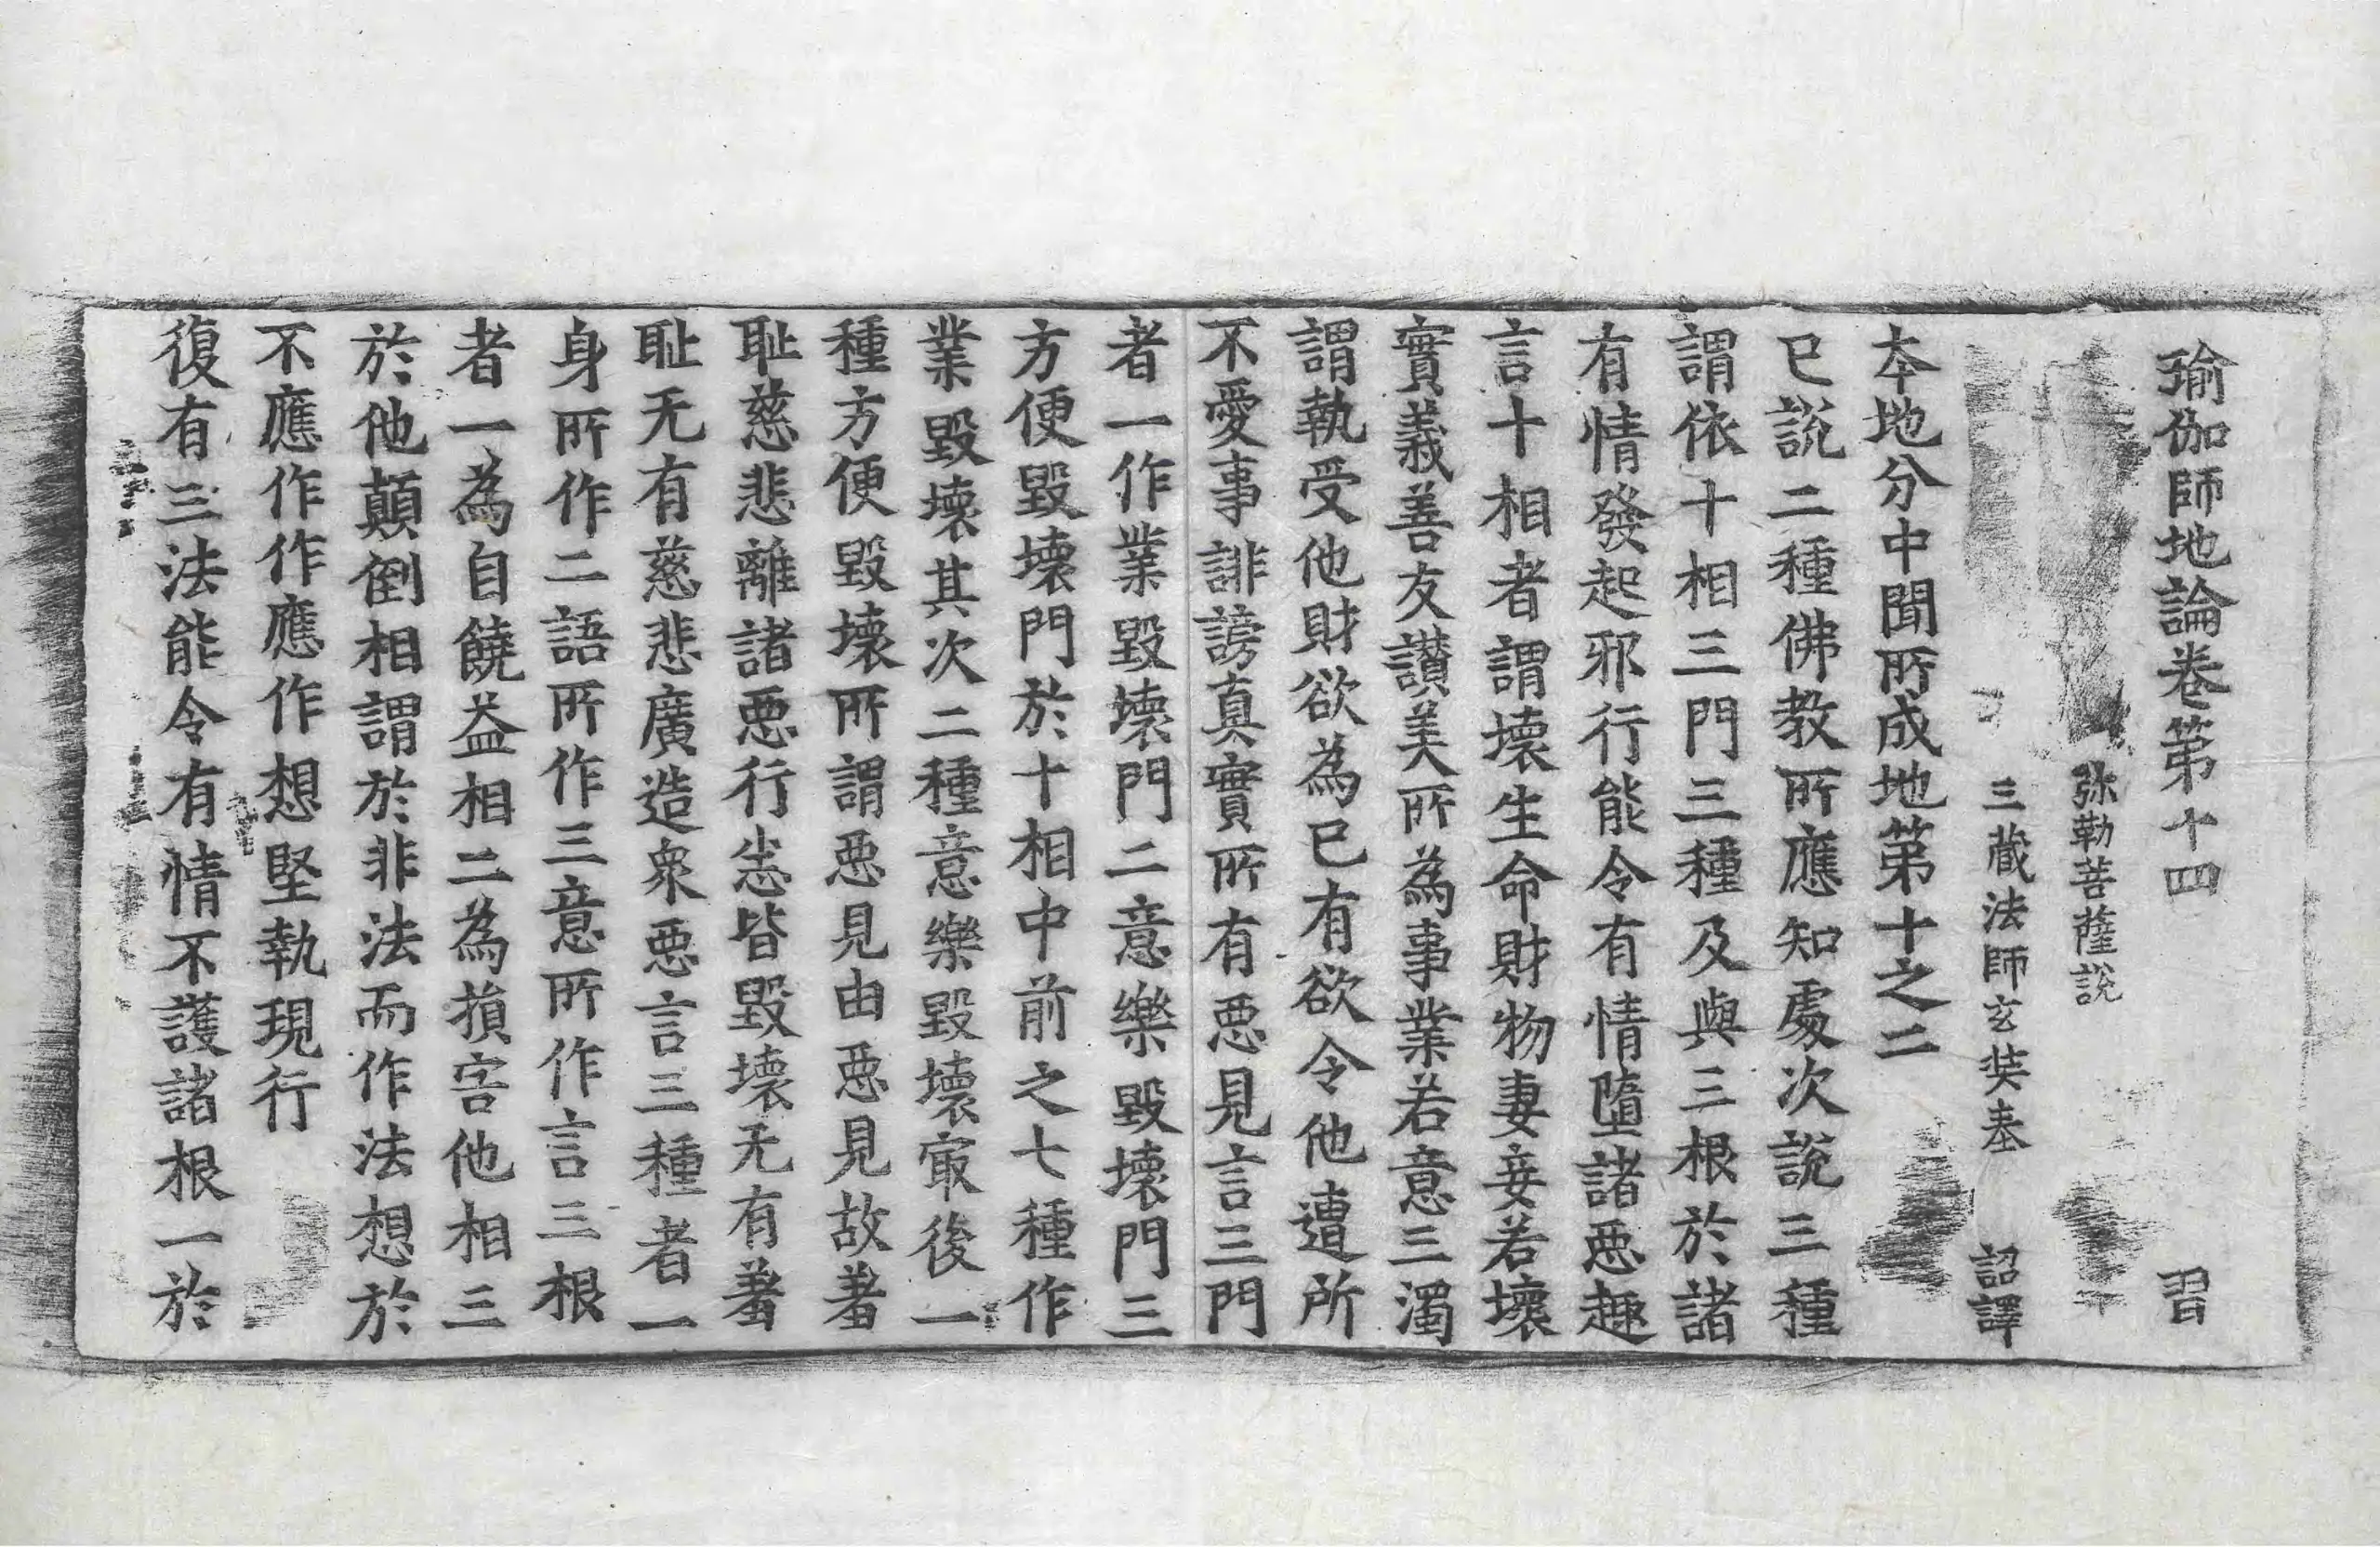 瑜伽師地論卷第十四 習
弥勒菩薩說
三藏法師玄奘奉 詔譯
本地分中聞所成地第十之二
已說二種佛教所應知處次說三種
謂依十相三門三種及與三根於諸
有情發起邪行能令有情墮諸惡趣
言十相者謂壞生命財物妻妾若壞
實義善友讃美所為事業若意三濁
謂執受他財欲為已有欲令他遭所
不愛事誹謗真實所有惡見言三門
者一作業毀壞門二意樂毀壞門三
方便毀壞門於十相中前之七種作
業毀壞其次二種意樂毀壞㝡後一
種方便毀壞所謂惡見由惡見故羞
耻慈悲離諸惡行恙皆毀壞无有羞
耻无有慈悲廣造衆惡言三種者一
身所作二語所作三意所作言三根
者一為自饒益相二為損害他相三
於他顛倒相謂於非法而作法想於
不應作作應作想堅執現行
復有三法能令有情不護諸根一於